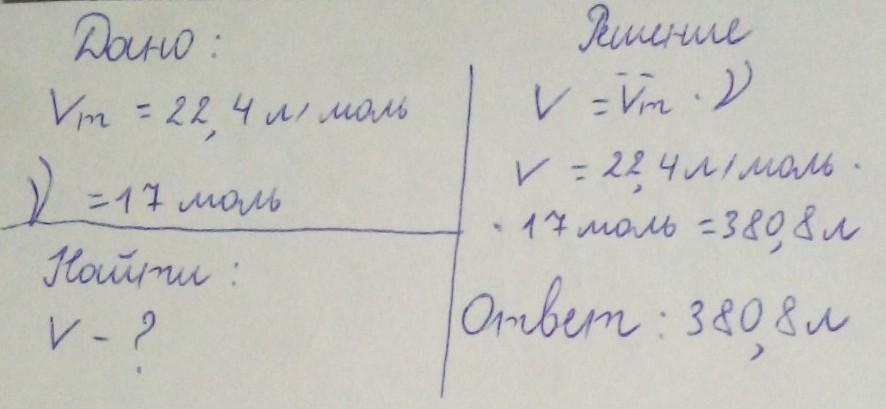 Дано:
Vm = 22,4 л/моль
ν = 17 моль
Найти:
V - ?
Решение
V = Vm · ν
V = 22,4 л/моль ·
· 17 моль = 380,8 л
Ответ: 380,8 л